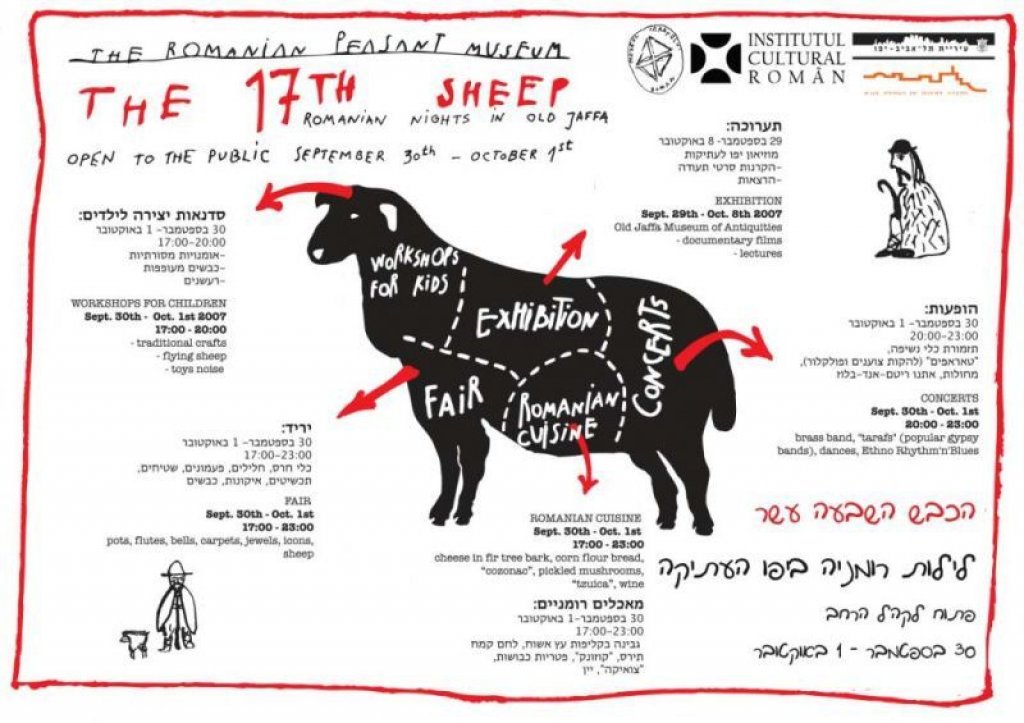 THE ROMANIAN PEASANT MUSEUM
THE 17TH SHEEP
ROMANIAN NIGHTS IN OLD JAFFA
OPEN TO THE PUBLIC SEPTEMBER 30th - OCTOBER 1st
INSTITUTUL
CULTURAL
ROMÂN
עיריית תל-אביב-יפו
תערוכה:
29 בספטמבר- 8 באוקטובר
מוזיאון יפו לעתיקות
-הקרנות סרטי תעודה
-הרצאות
EXHIBITION
Sept. 29th - Oct. 8th 2007
Old Jaffa Museum of Antiquities
- documentary films
- lectures
סדנאות יצירה לילדים:
30 בספטמבר- 1 באוקטובר
17:00-20:00
-אומנויות מסורתיות
-כבשים מעופפות
-רעשנים
WORKSHOPS FOR CHILDREN
Sept. 30th - Oct. 1st 2007
17:00 - 20:00
- traditional crafts
- flying sheep
- toys noise
WORKSHOPS
FOR KIDS
EXHIBITION
CONCERTS
FAIR
ROMANIAN
CUISINE
הופעות:
30 בספטמבר- 1 באוקטובר
20:00-23:00
תזמורת כלי נשיפה,
"טאראפים" (להקות צוענים ופולקלור),
מחולות, אתנו ריטם-אנד-בלוז
CONCERTS
Sept. 30th - Oct. 1st
20:00 - 23:00
brass band, "tarafs" (popular gypsy
bands), dances, Ethno Rhythm'n'Blues
יריד:
30 בספטמבר- 1 באוקטובר
17:00-23:00
כלי חרס, חלילים, פעמונים, שטיחים,
תכשיטים, איקונות, כבשים
FAIR
Sept. 30th - Oct. 1st
17:00 - 23:00
pots, flutes, bells, carpets, jewels, icons,
sheep
ROMANIAN CUISINE
Sept. 30th - Oct. 1st
17:00 - 23:00
cheese in fir tree bark, corn flour bread,
"cozonac", pickled mushrooms,
"tzuica", wine
מאכלים רומניים:
30 בספטמבר-1 באוקטובר
17:00-23:00
גבינה בקליפות עץ אשוח, לחם קמח
תירס, "קוזונק", פטריות כבושות,
"צואיקה", יין
הכבש השבעה עשר
לילות רומניה ביפו העתיקה
פתוח לקהל הרחב
30 בספטמבר - 1 באוקטובר